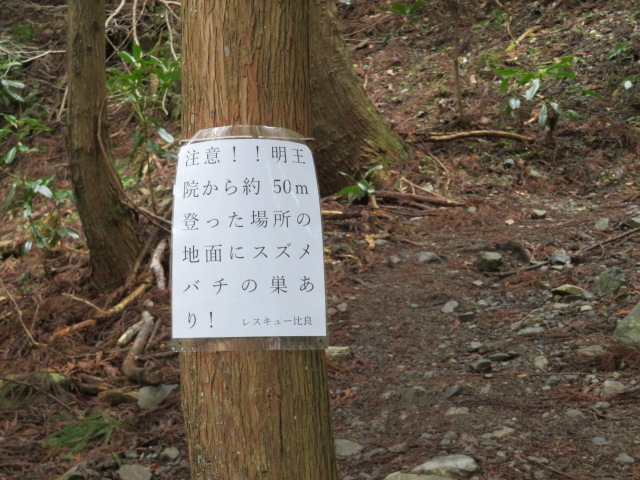 注意！！明王
院から約 50m
登った場所の
地面にスズメ
バチの巣あ
り！ レスキュー比良